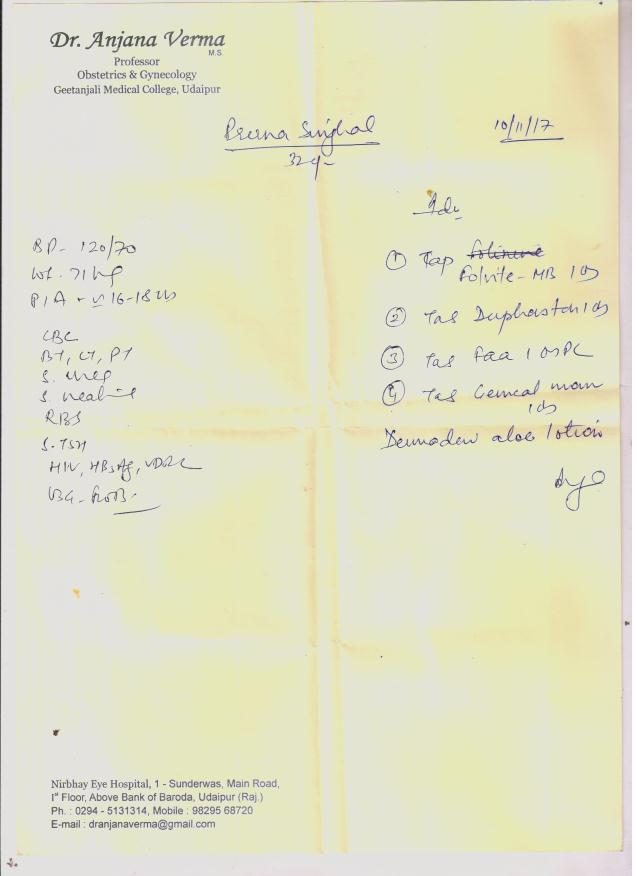 Dr. Anjana Verma
M.S.
Professor
Obstetrics & Gynecology
Geetanjali Medical College, Udaipur
Prerna Singhal
10/11/17
32y
Adv
BP - 120/70
Wt. 71 kg
P/A - 16-18 w
CBC
BT, CT, PT
S.
S.
RBS
S. TSH
HIV, HBsAg, VDRL
① Tap
Folvite-MB 1 OD
② Tab Duphaston 1 OD
③ Tab 1
④ Tab
1 OD
aloe lotion
Nirbhay Eye Hospital, 1 - Sunderwas, Main Road,
1st Floor, Above Bank of Baroda, Udaipur (Raj.)
Ph. : 0294 - 5131314, Mobile : 98295 68720
E-mail : dranjanaverma@gmail.com